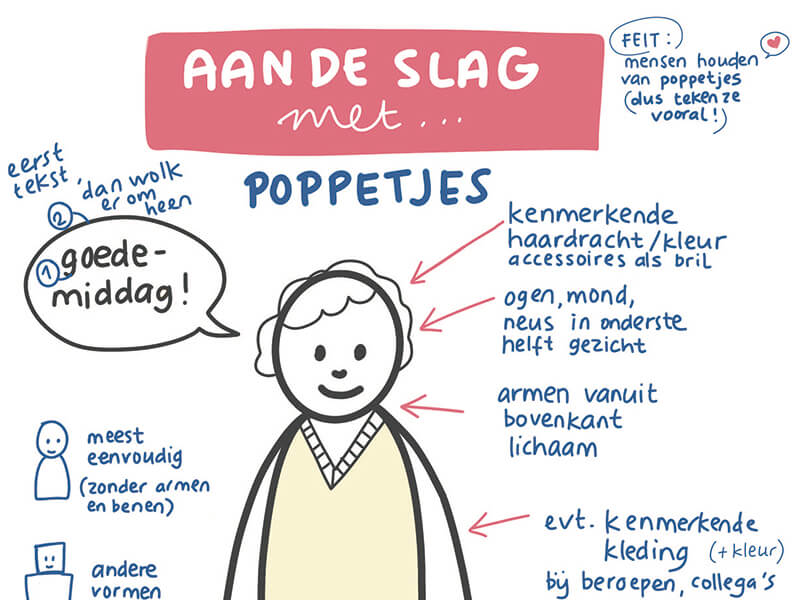 AAN DE SLAG
met...
FEIT:
mensen houden
van poppetjes
(dus teken ze
vooral!)
POPPETJES
eerst
tekst
dan wolk
er om
heen
2
1
goede-
middag!
kenmerkende
haardracht/kleur
accessoires als bril
ogen, mond,
neus in onderste
helft gezicht
armen vanuit
bovenkant
lichaam
meest
eenvoudig
(zonder armen
en benen)
evt. kenmerkende
kleding (+kleur)
bij beroepen, collega's
andere
vormen